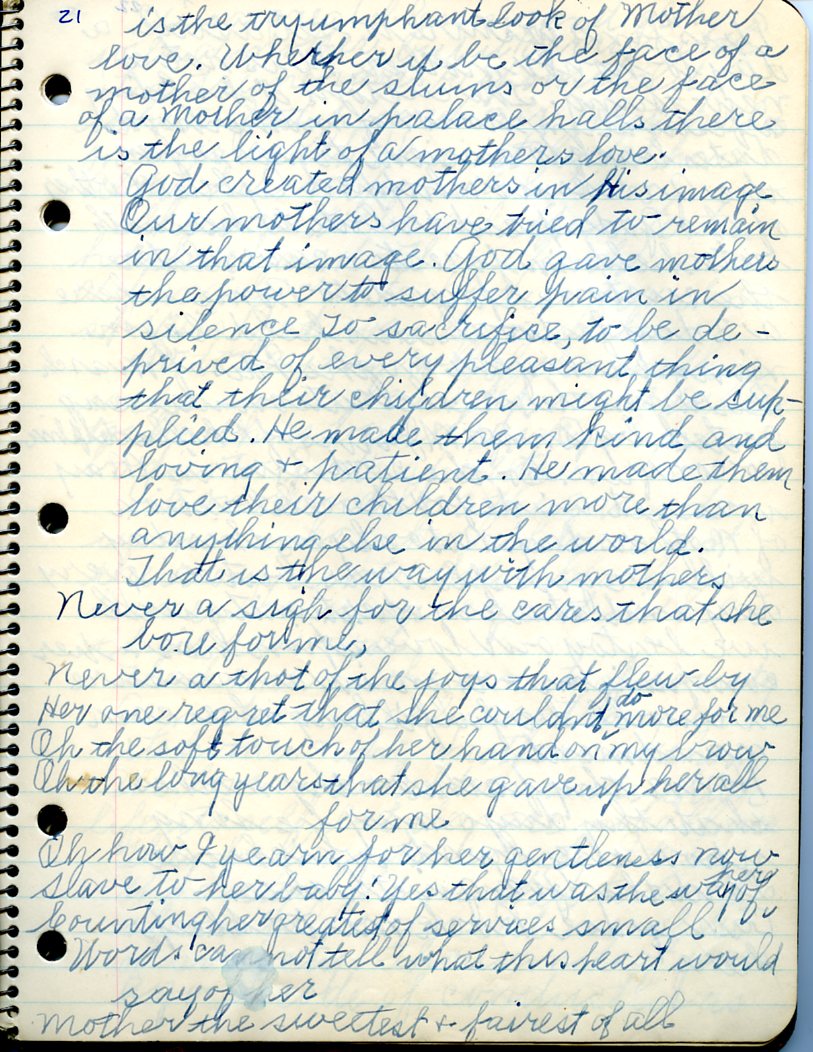 21
is the tryumphant look of Mother
love. Whether it be the face of a
mother of the slums or the face
of a Mother in palace halls there
is the light of a mothers love.
God created mothers in His image
Our mothers have tried to remain
in that image. God gave mothers
the power to suffer pain in
silence To sacrifice, to be de-
prived of every pleasant thing
that their children might be sup-
plied. He made them kind and
loving + patient. He made them
love their children more than
anything else in the world.
That is the way with mothers
Never a sigh for the cares that she
bore for me,
Never a thot of the joys that flew by
Her one regret that she couldnt do more for me
Oh the soft touch of her hand on my brow
Oh the long years that she gave up her all
for me
Oh how I yearn for her gentleness now
slave to her baby! Yes that was the way of her
Counting her greatest of services small
Words cannot tell what this heart would
say of her
Mother the sweetest + fairest of all